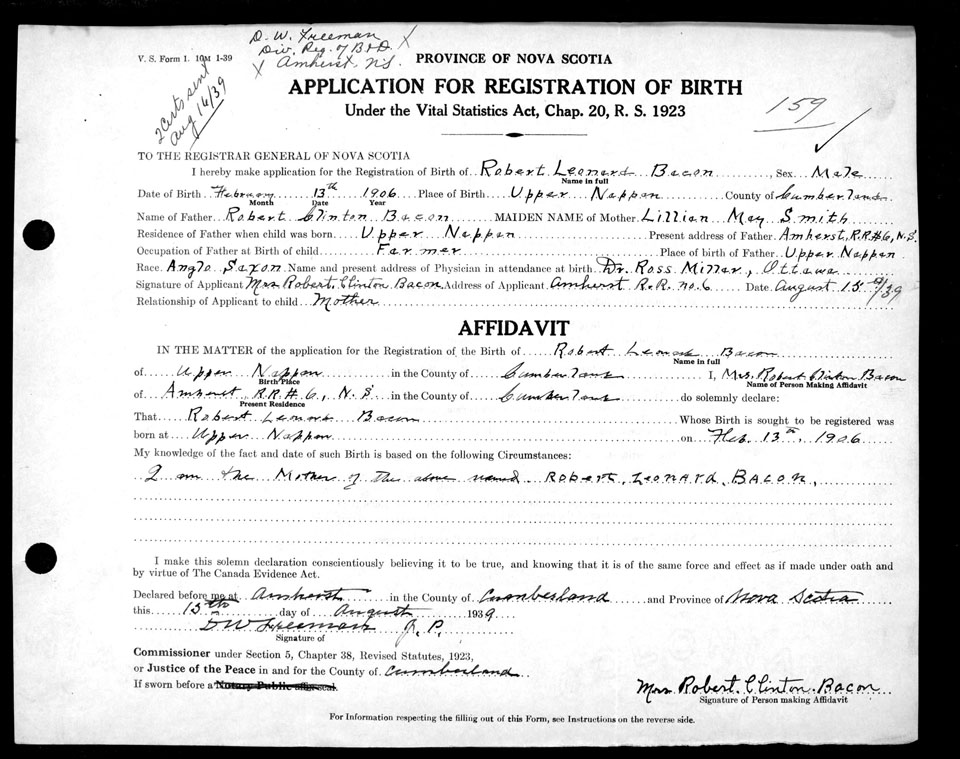 D. W. Freeman
Div. Reg. of B & D.
Amherst, N.S.
V. S. Form 1. 10M 1-39
2 Certs sent
Aug 16/39
PROVINCE OF NOVA SCOTIA
APPLICATION FOR REGISTRATION OF BIRTH
Under the Vital Statistics Act, Chap. 20, R. S. 1923
159
TO THE REGISTRAR GENERAL OF NOVA SCOTIA
I hereby make application for the Registration of Birth of Robert Leonard Bacon, Sex Male
Name in full
Date of Birth February 13th 1906 Place of Birth Upper Nappan County of Cumberland
Month Date Year
Name of Father Robert Clinton Bacon MAIDEN NAME of Mother Lillian May Smith
Residence of Father when child was born Upper Nappan Present address of Father Amherst, R.R.#6, N.S.
Occupation of Father at Birth of child Farmer Place of birth of Father Upper Nappan
Race Anglo Saxon Name and present address of Physician in attendance at birth Dr. Ross Millar, Ottawa
Signature of Applicant Mrs Robert Clinton Bacon Address of Applicant Amherst R.R. no. 6 Date August 15 9/39
Relationship of Applicant to child Mother
AFFIDAVIT
IN THE MATTER of the application for the Registration of the Birth of Robert Leonard Bacon
Name in full
of Upper Nappan in the County of Cumberland I, Mrs. Robert Clinton Bacon
Birth Place Name of Person Making Affidavit
of Amherst R.R.#6, N.S in the County of Cumberland do solemnly declare:
Present Residence
That Robert Leonard Bacon Whose Birth is sought to be registered was
born at Upper Nappan on Feb. 13th, 1906
My knowledge of the fact and date of such Birth is based on the following Circumstances:
I am the Mother of the above named Robert, Leonard, Bacon,
I make this solemn declaration conscientiously believing it to be true, and knowing that it is of the same force and effect as if made under oath and
by virtue of The Canada Evidence Act.
Declared before me at Amherst in the County of Cumberland and Province of Nova Scotia
this 15th day of August 1939
D W Freeman J. P.
Signature of
Commissioner under Section 5, Chapter 38, Revised Statutes, 1923,
or Justice of the Peace in and for the County of Cumberland
If sworn before a Notary Public affix seal.
Mrs Robert Clinton Bacon
Signature of Person making Affidavit
For Information respecting the filling out of this Form, see Instructions on the reverse side.